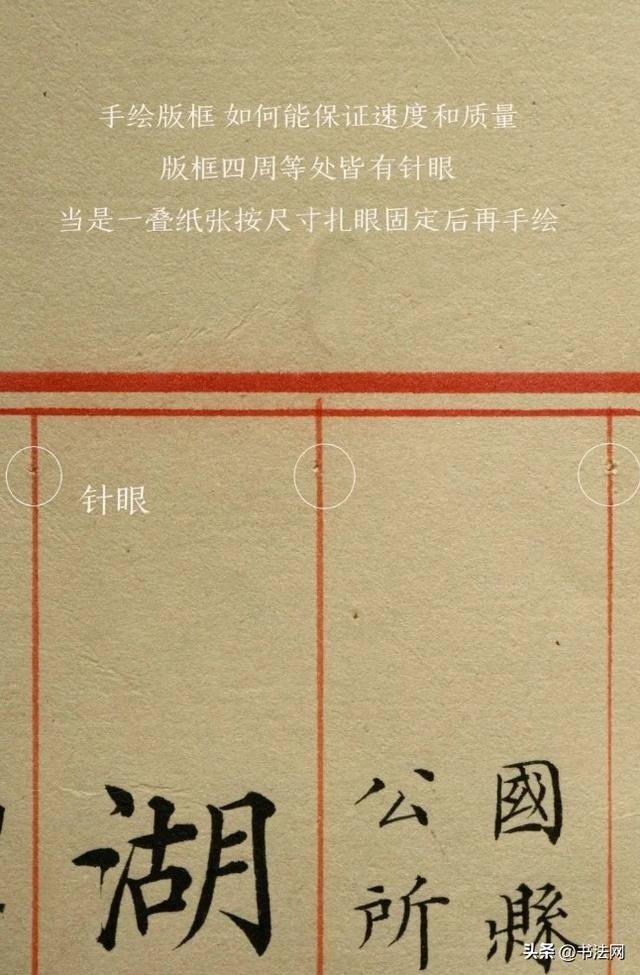 手绘版框 如何能保证速度和质量
版框四周等处皆有针眼
当是一叠纸张按尺寸扎眼固定后再手绘
针眼
國縣
公所
湖
头条 @书法网